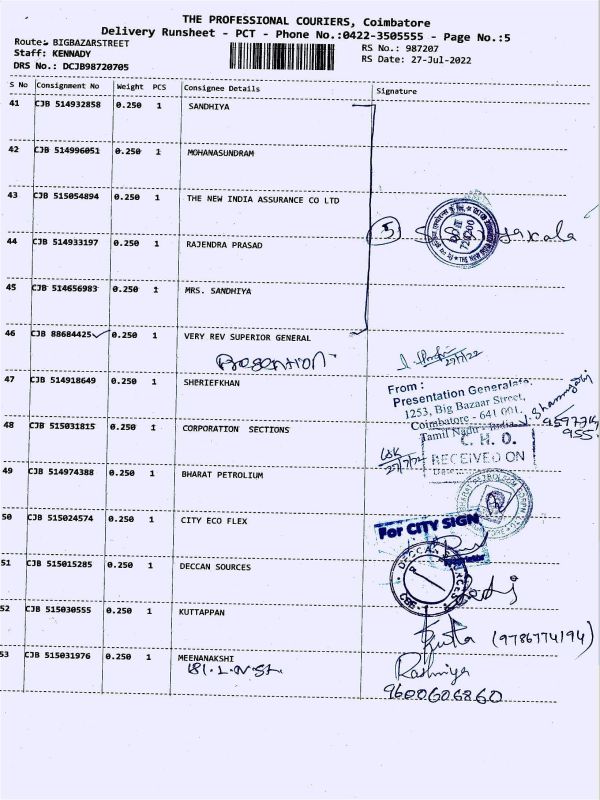 THE PROFESSIONAL COURIERS, Coimbatore
Delivery Runsheet - PCT - Phone No.:0422-3505555 - Page No.:5
Route: BIGBAZARSTREET
RS No.: 987207
Staff: KENNADY
RS Date: 27-Jul-2022
DRS No.: DCJB98720705
S No Consignment No Weight PCS Consignee Details Signature
41 CJB 514932858 0.250 1 SANDHIYA
42 CJB 514996051 0.250 1 MOHANASUNDRAM
43 CJB 515054894 0.250 1 THE NEW INDIA ASSURANCE CO LTD
5
720300
44 CJB 514933197 0.250 1 RAJENDRA PRASAD
45 CJB 514656983 0.250 1 MRS. SANDHIYA
46 CJB 88684425 0.250 1 VERY REV SUPERIOR GENERAL
27/7/22
47 CJB 514918649 0.250 1 SHERIEFKHAN
From :
Presentation Generalate
1253, Big Bazaar Street,
Coimbatore - 641 001.
Tamil Nadu - India
48 CJB 515031815 0.250 1 CORPORATION SECTIONS
C. H. O.
RECEIVED ON
27/7/22
49 CJB 514974388 0.250 1 BHARAT PETROLIUM
50 CJB 515024574 0.250 1 CITY ECO FLEX
For CITY SIGN
51 CJB 515015285 0.250 1 DECCAN SOURCES
52 CJB 515030555 0.250 1 KUTTAPPAN
(9786774194)
53 CJB 515031976 0.250 1 MEENANAKSHI
9600606860